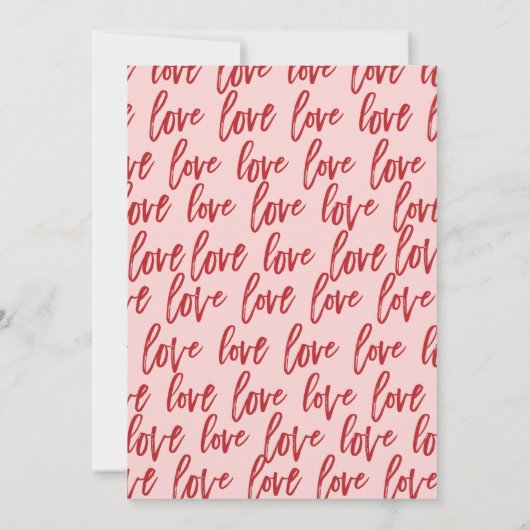 love love love love
love love love love
love love love love
love love love love love
love love love love lov
love love love love
love love love love lo
love love love love
love love love love lov
ve love love love love